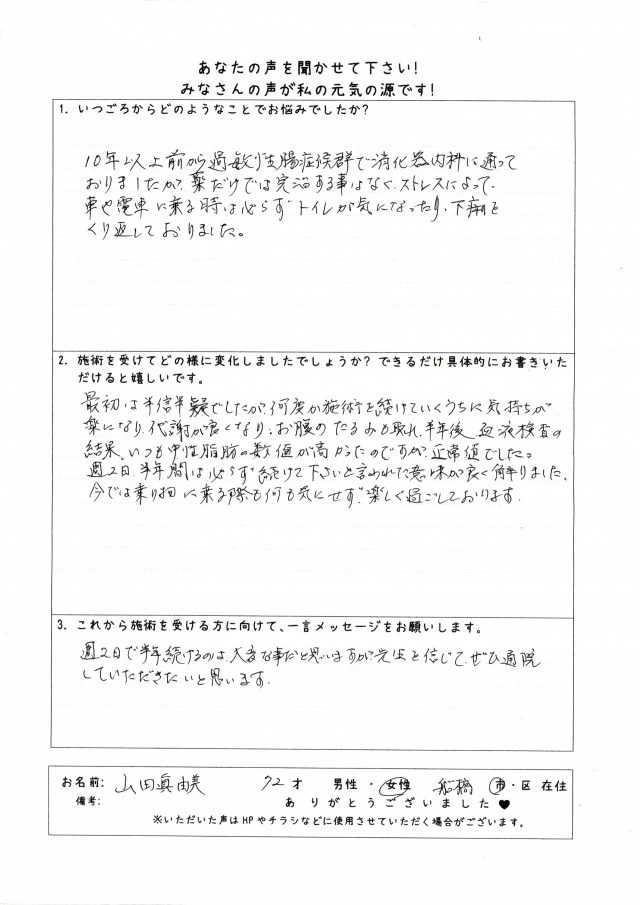 あなたの声を聞かせて下さい!
みなさんの声が私の元気の源です!
1. いつごろからどのようなことでお悩みでしたか?
10年以上前から過敏性腸症候群で消化器内科に通って
おりましたが、薬だけでは完治する事はなく、ストレスによって、
車や電車に乗る時は必らずトイレが気になったり、下痢を
くり返しておりました。
2. 施術を受けてどの様に変化しましたでしょうか? できるだけ具体的にお書きいた
だけると嬉しいです。
最初は半信半疑でしたが、何度か施術を続けていくうちに気持ちが
楽になり、代謝が良くなり、お腹のたるみも取れ、半年後、血液検査の
結果、いつも中性脂肪の数値が高かったのですが、正常値でした。
週2日、半年間は必らず続けて下さいと言われた意味が良く解りました。
今では乗り物に乗る際も何も気にせず、楽しく過ごしております。
3. これから施術を受ける方に向けて、一言メッセージをお願いします。
週2日で半年続けるのは、大変な事だと思いますが先生を信じて、ぜひ通院
していただきたいと思います。
お名前: 山田眞由美 72才 男性・女性 船橋 市・区 在住
備考: ありがとうございました♥
※いただいた声はHPやチラシなどに使用させていただく場合がございます。